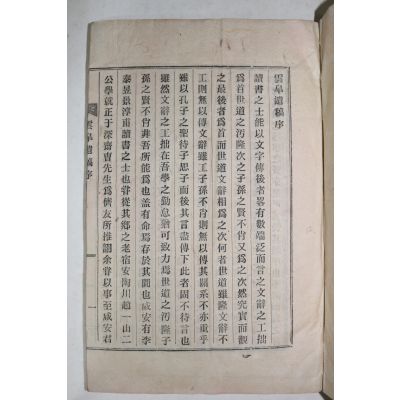 雲皐遺稿序
讀書之士能以文字傳後者畧有數端泛而言之文辭之工拙
爲首世道之汚隆次之子孫之賢不肖又爲之次然究實而觀
之最後者爲首而世道文辭相爲之次何者世道雖隆文辭不
工則無以傳文辭雖工子孫不肖則無以傳其關系不亦重乎
雖以孔子之聖待子思子而後其言盡傳下此者固不待言也
雖然文辭之工拙在吾學之勤怠猶可致力爲世道之汚隆子
孫之賢不肖非吾所能爲也盖有命焉存於其間也咸安有李
泰昱景淳甫讀書之士也甞從其鄉之老宿安陶川趙一山二
公學就正于深齋曺先生爲儕友所推詡余甞以事至咸安君
雲皐遺稿序
一